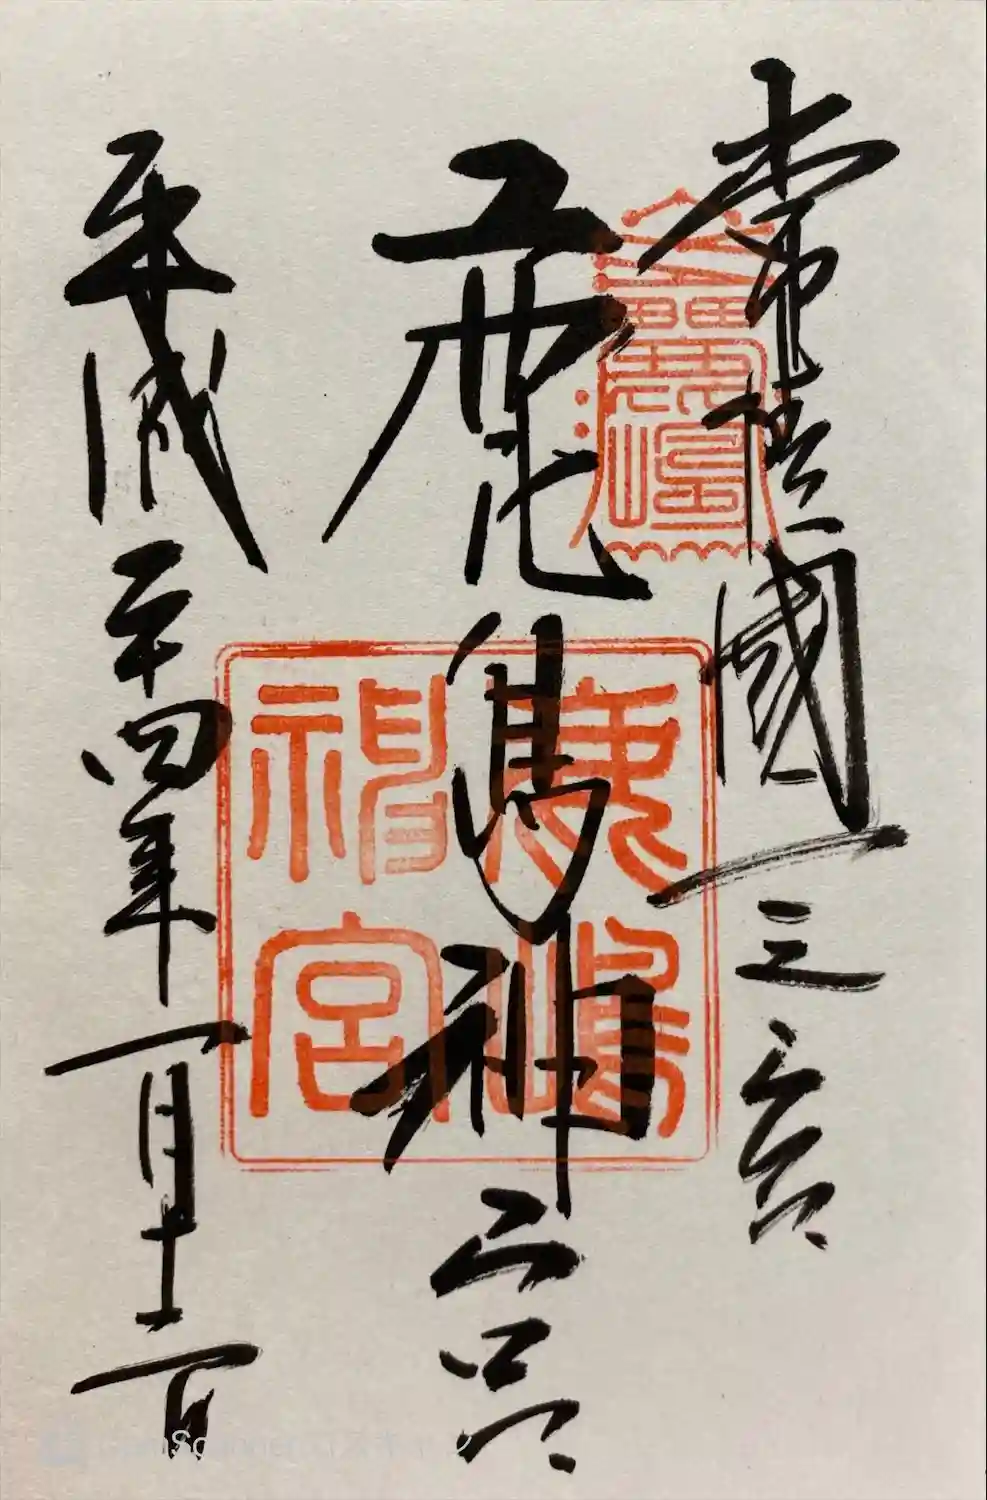 常陸國一之宮
鹿島神宮
平成二十四年一月十一日
鹿嶋神宮